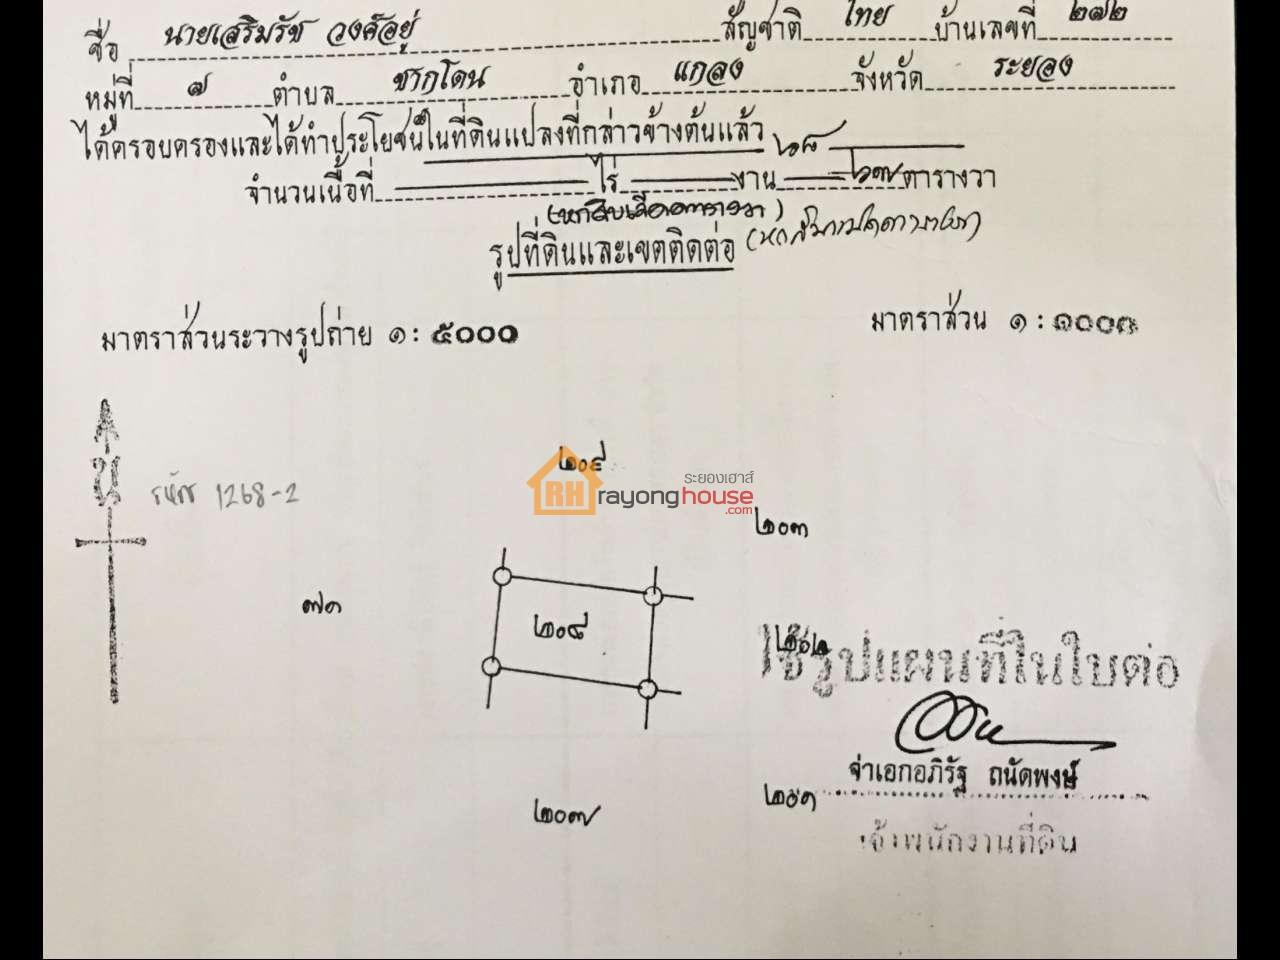 ชื่อ นายเสริมรัช วงศ์อยู่ สัญชาติ ไทย บ้านเลขที่ ๒๗๒
หมู่ที่ ๗ ตำบล ชากโดน อำเภอ แกลง จังหวัด ระยอง
ได้ครอบครองและได้ทำประโยชน์ในที่ดินแปลงที่กล่าวข้างต้นแล้ว
จำนวนเนื้อที่ ไร่ งาน ตารางวา
รูปที่ดินและเขตติดต่อ
มาตราส่วนระวางรูปถ่าย ๑ : ๕๐๐๐ มาตราส่วน ๑ : ๑๐๐๐
น
รหัส 1268-2
๒๐๙
ระยองเฮาส์
RH rayonghouse
.com
๒๐๓
๗๑
๒๐๘
๒๐๒
ใช้รูปแผนที่ในใบต่อ
จ่าเอกอภิรัฐ ถนัดพงษ์
๒๐๑
๒๐๗
เจ้าพนักงานที่ดิน